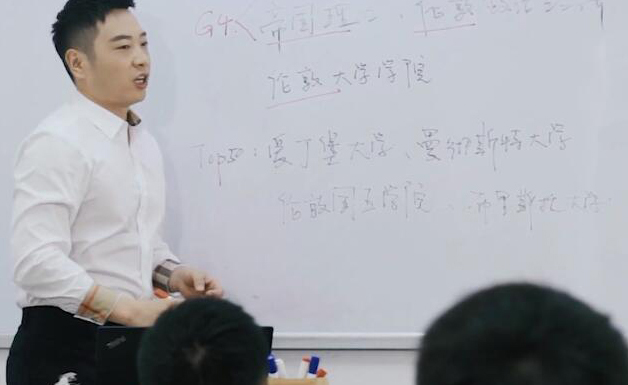 G4：帝国理工、伦敦政治
伦敦大学学院
Top5：爱丁堡大学、曼彻斯特大学
伦敦国王学院、布里斯托大学